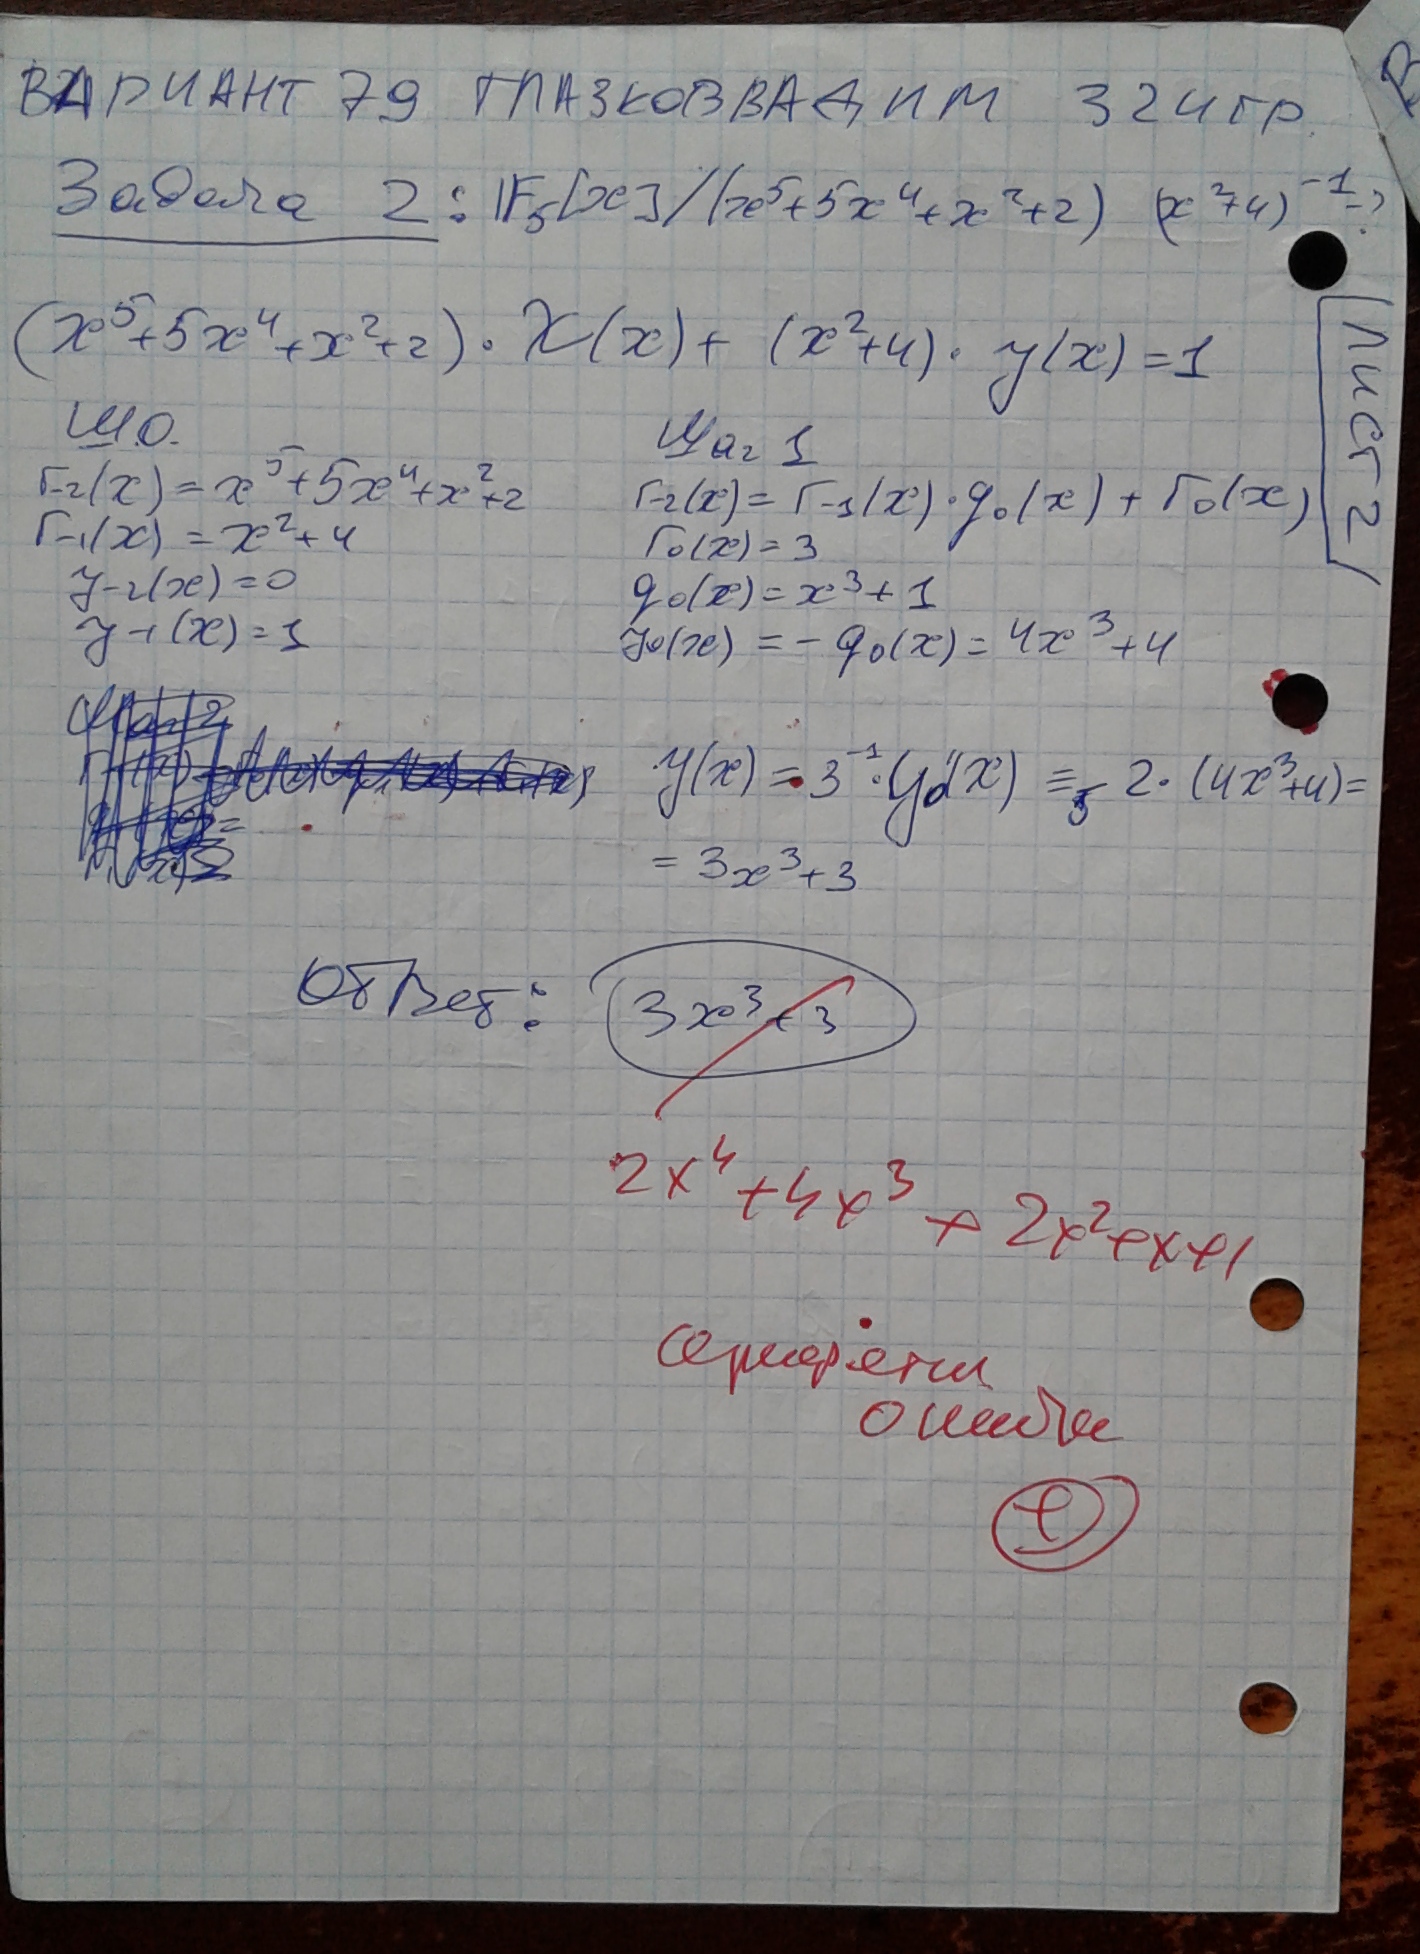 ВАРИАНТ 79 ГЛАЗКОВ ВАДИМ 324 гр.
Задача 2: |F₅[x]/(x⁵+5x⁴+x²+2) (x²+4)⁻¹-?
(x⁵+5x⁴+x²+2)·X(x)+(x²+4)·y(x)=1
Лист 2
Ш.0.
r₋₂(x)=x⁵+5x⁴+x²+2
r₋₁(x)=x²+4
y₋₂(x)=0
y₋₁(x)=1
Шаг 1
r₋₂(x)=r₋₁(x)·q₀(x)+r₀(x)
r₀(x)=3
q₀(x)=x³+1
y₀(x)=-q₀(x)=4x³+4
y(x)=3⁻¹·y₀(x)≡₅2·(4x³+4)=
=3x³+3
Ответ: 3x³+3
2x⁴+4x³+2x²+x+1
ошибки